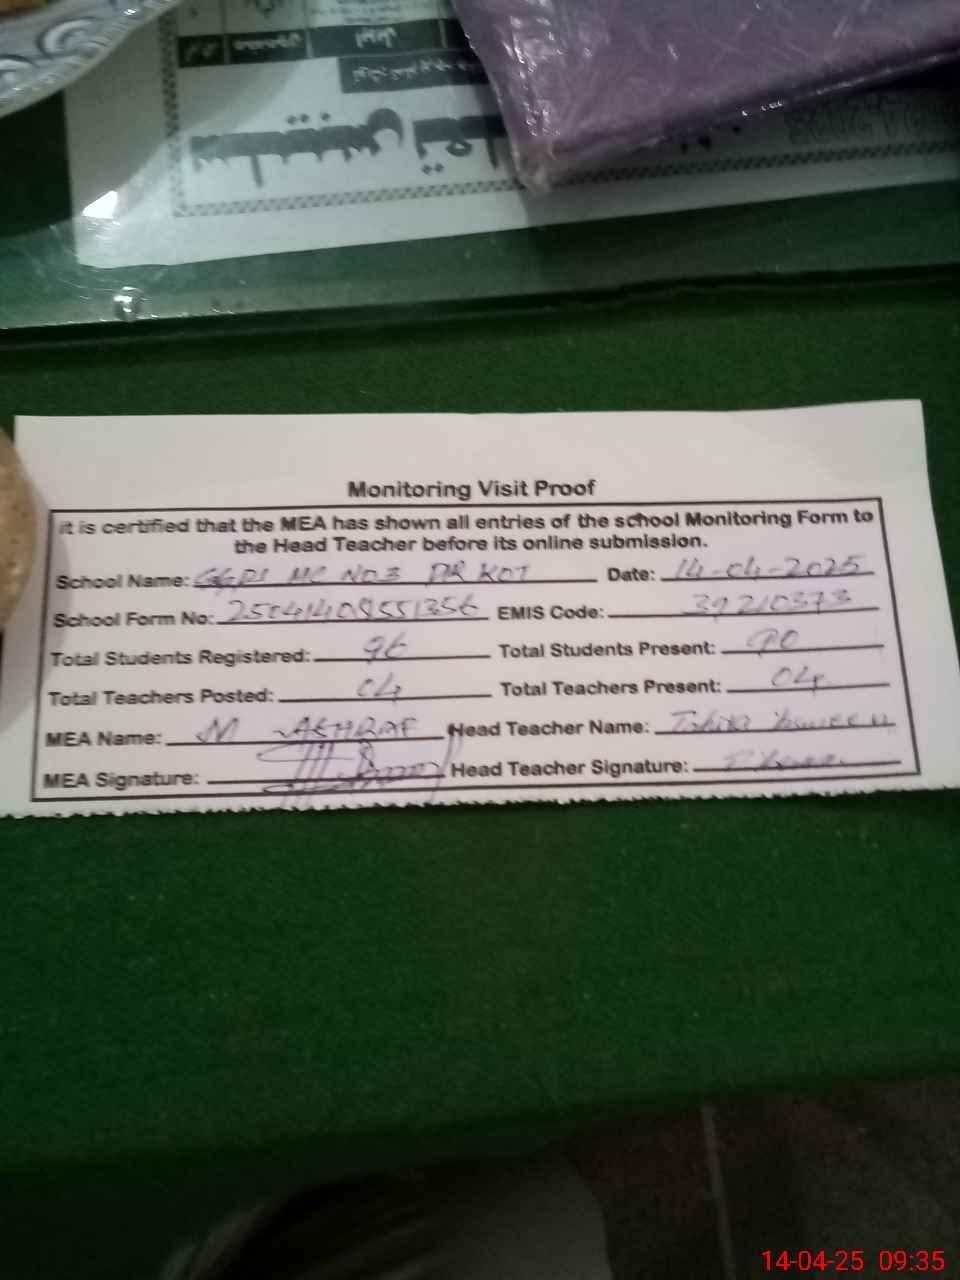 سلیبس
Monitoring Visit Proof
it is certified that the MEA has shown all entries of the school Monitoring Form to
the Head Teacher before its online submission.
School Name: GGPS MC NO3 DR KOT Date: 14-04-2025
School Form No: 25041408551356 EMIS Code: 39210373
Total Students Registered: 96 Total Students Present: 90
Total Teachers Posted: 04 Total Teachers Present: 04
MEA Name: M ASHRAF Head Teacher Name: Tahira Yasmeen
MEA Signature: Head Teacher Signature:
14-04-25 09:35